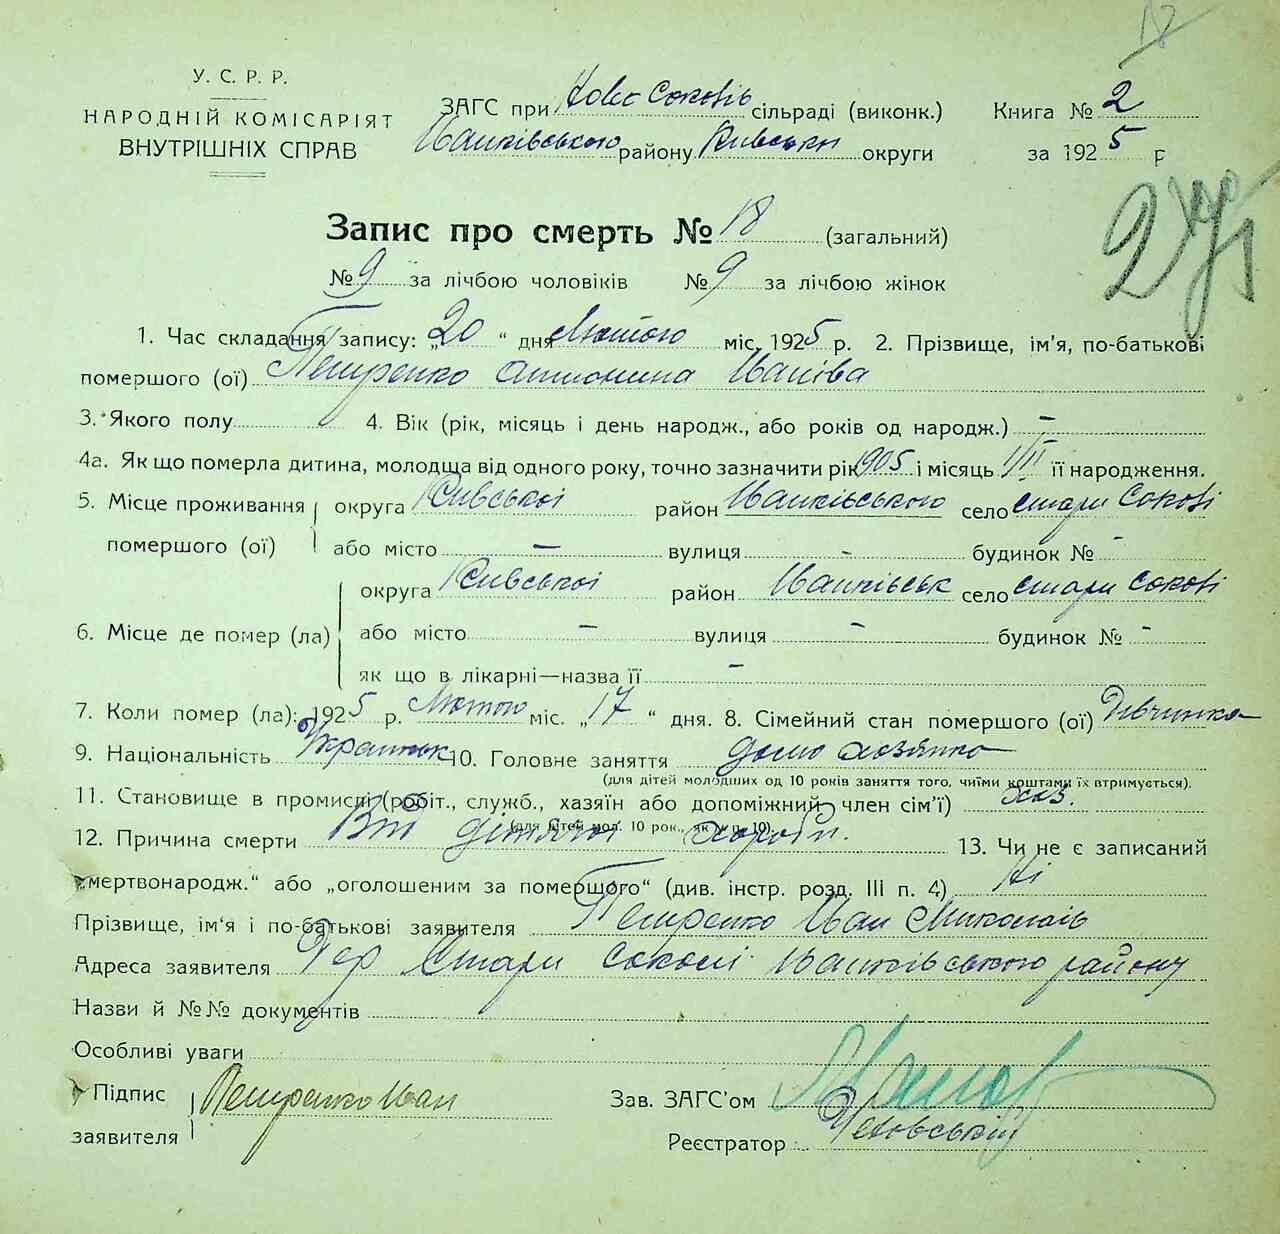 18
У. С. Р. Р.
НАРОДНІЙ КОМІСАРІЯТ
ВНУТРІШНІХ СПРАВ
ЗАГС при Ново Соковів сільраді (виконк.)
Іванківського району Київськи округи
Книга № 2
за 1925 р
Запис про смерть № 18 (загальний)
№ 9 за лічбою чоловіків № 9 за лічбою жінок
1. Час складання запису: „20" дня Лютого міс. 1925 р. 2. Прізвище, ім'я, по-батькові
помершого (ої) Петренко Антонина Іванівa
3. Якого полу 4. Вік (рік, місяць і день народж., або років од народж.) –
4а. Як що померла дитина, молодща від одного року, точно зазначити рік 1905 і місяць 1/II її народження.
5. Місце проживання округа Київської район Іванківського село Стари Сокові
помершого (ої) або місто – вулиця - будинок № -
6. Місце де помер (ла) округа Київської район Іванківськ село Стари Сокові
або місто – вулиця – будинок № -
як що в лікарні—назва її –
7. Коли помер (ла): 1925 р. Лютого міс. „17" дня. 8. Сімейний стан помершого (ої) Дівчинка
9. Національність 10. Головне заняття домо хозяйка
(для дітей молодших од 10 років заняття того, чиїми коштами їх втримується).
11. Становище в промислі (робіт., служб., хазяїн або допоміжний член сім'ї) хоз.
(для дітей мол. 10 рок., як у п. 10).
12. Причина смерти Від хороби. 13. Чи не є записаний
„мертвонародж." або „оголошеним за помершого" (див. інстр. розд. III п. 4) Ні
Прізвище, ім'я і по-батькові заявителя Петренко Іван Миколаїв
Адреса заявителя Стари Сокові Іванківського району
Назви й №№ документів
Особливі уваги
Підпис заявителя Петренко Іван
Зав. ЗАГС'ом
Реєстратор